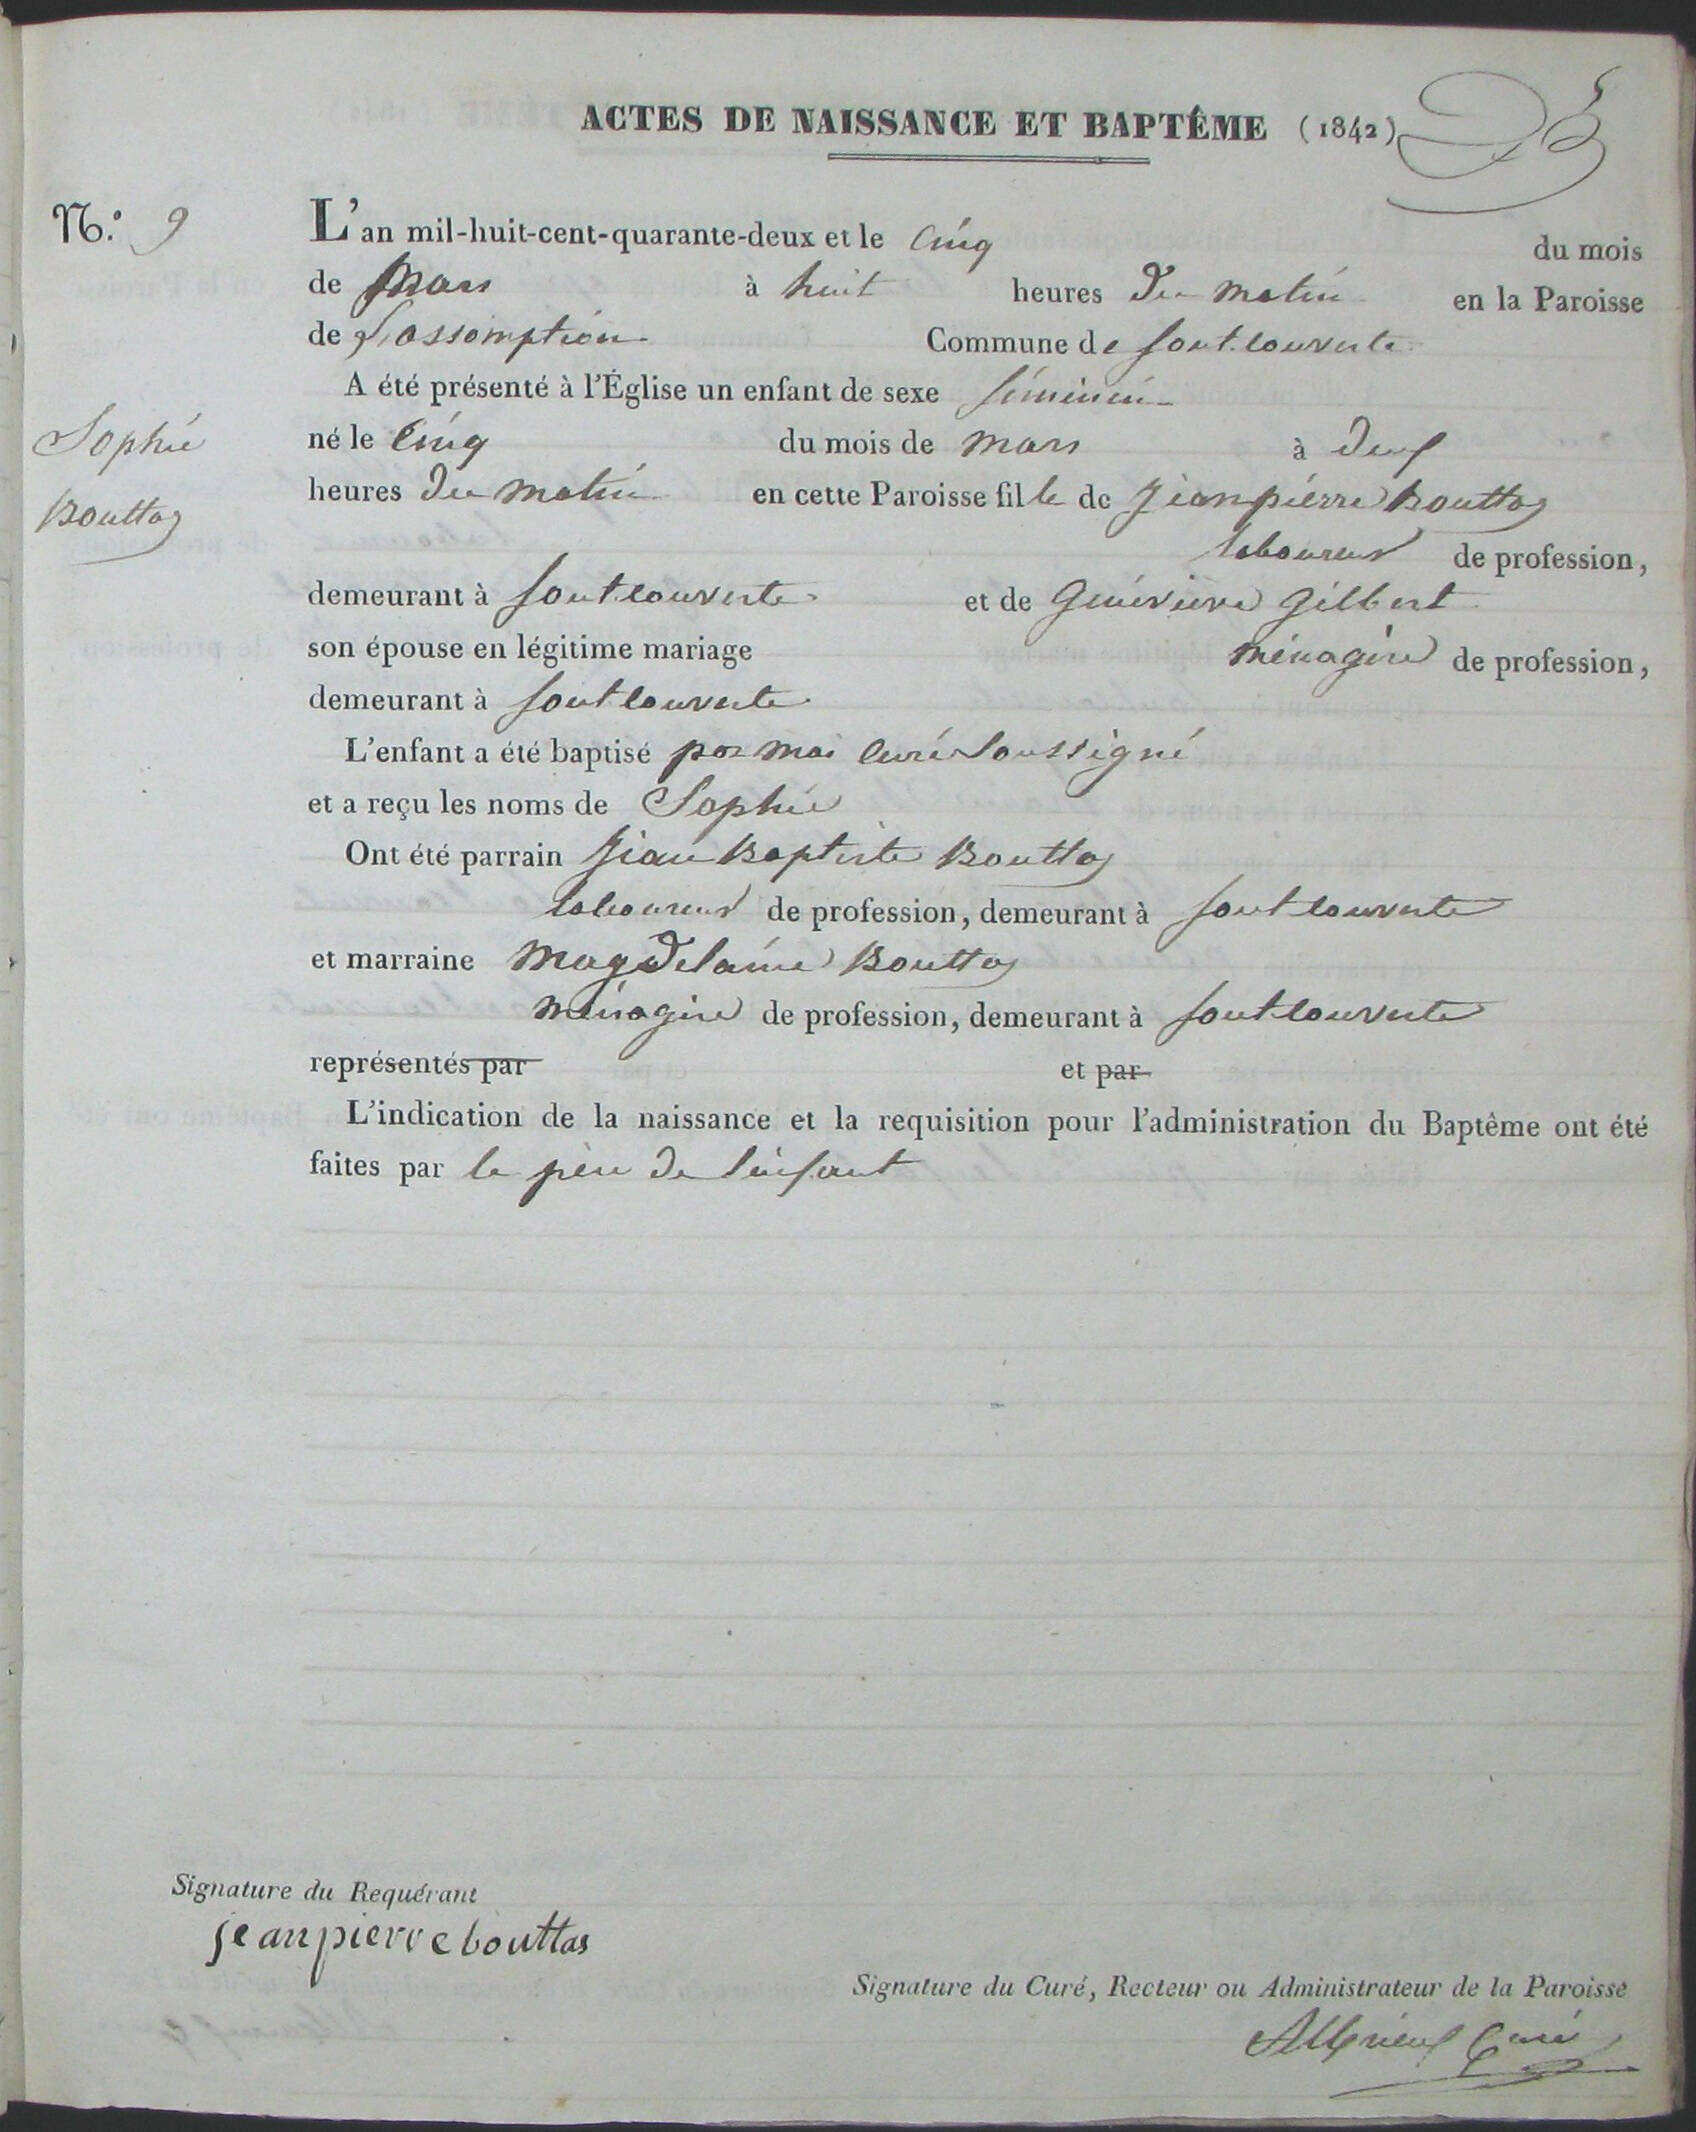 ACTES DE NAISSANCE ET BAPTÊME (1842)
N.º 9
L'an mil-huit-cent-quarante-deux et le cinq du mois
de mars à huit heures du matin en la Paroisse
de L'assomption Commune de font couverte
A été présenté à l'Église un enfant de sexe féminin
Sophie
Bouttas
né le cinq du mois de mars à deux
heures du matin en cette Paroisse fille de Jeanpierre Bouttas
laboureur de profession,
demeurant à fontcouverte et de Geneviève Gilbert
son épouse en légitime mariage ménagère de profession,
demeurant à fontcouverte
L'enfant a été baptisé par moi curé soussigné
et a reçu les noms de Sophie
Ont été parrain Jean Baptiste Bouttas
laboureur de profession, demeurant à fontcouverte
et marraine Magdelaine Bouttas
ménagère de profession, demeurant à fontcouverte
représentés par et par
L'indication de la naissance et la requisition pour l'administration du Baptême ont été
faites par le père de l'enfant
Signature du Requérant
jeanpierre bouttas
Signature du Curé, Recteur ou Administrateur de la Paroisse
Curé